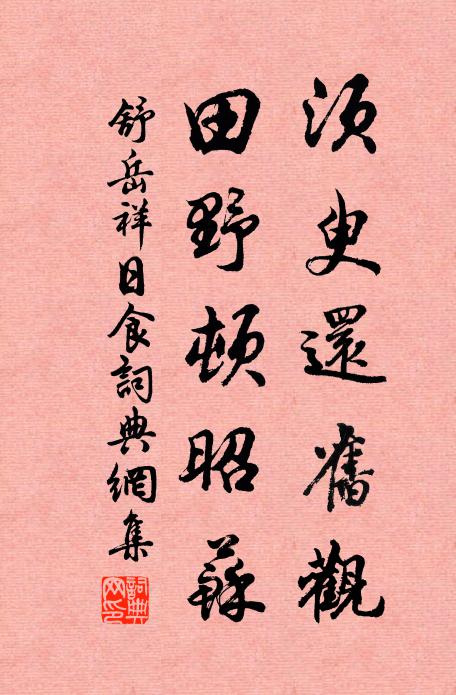 須臾還舊觀
田野頓昭蘇
舒岳祥日食詞典網集
詞典網印